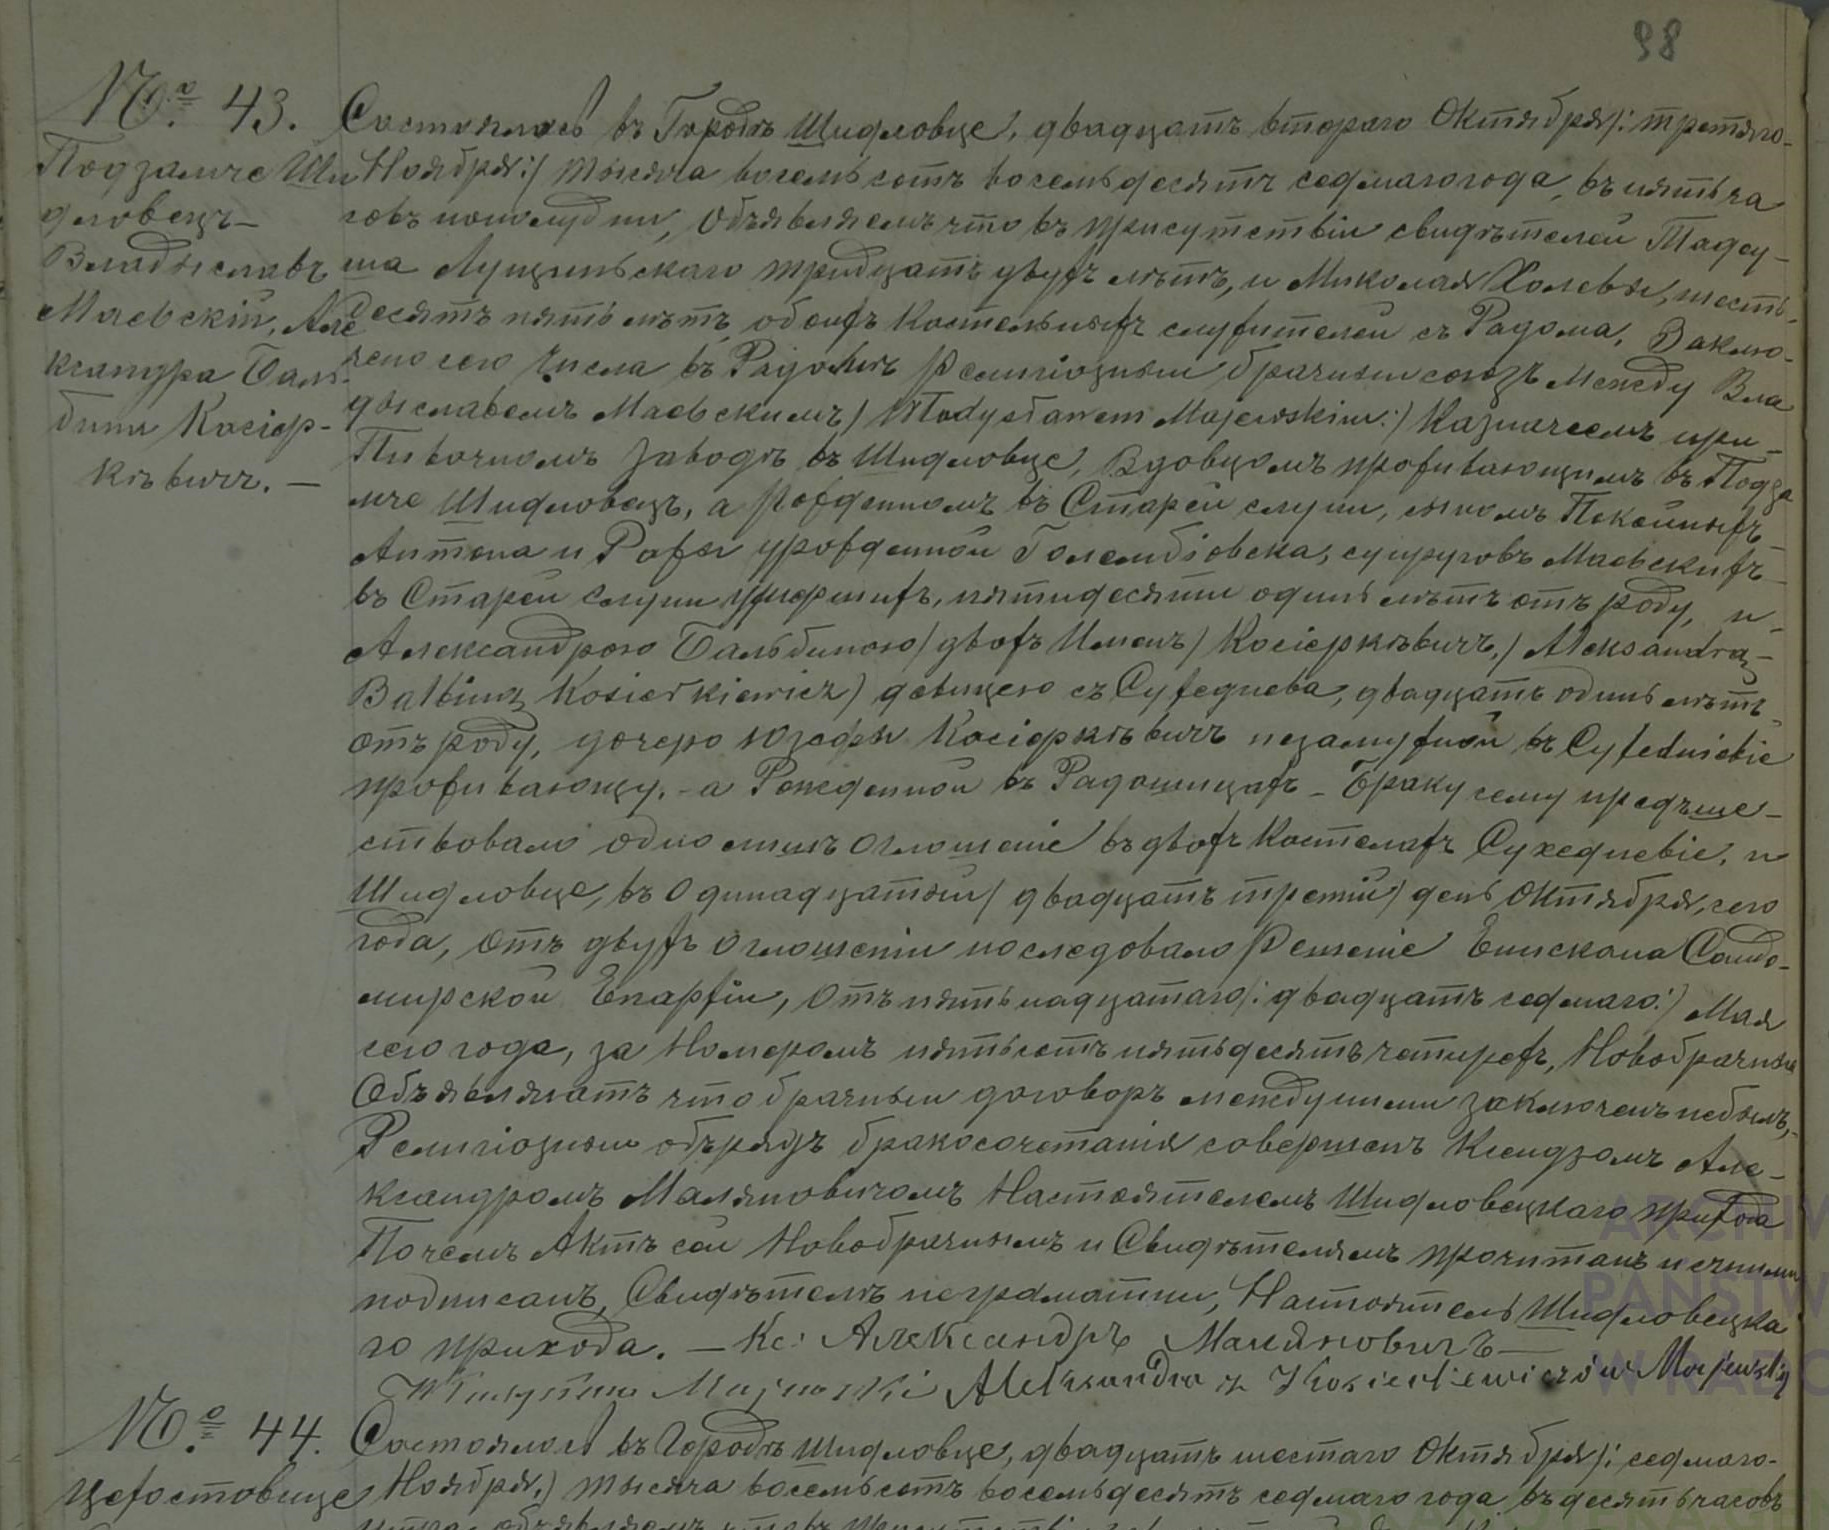 98
№ 43.
Подзамче Ши
дловецъ—
Владыславъ
Маевскій, Але
ксандра Баль-
бина Косіер-
кѣвичъ. —
Состоялось въ Городѣ Шидловце, двадцать втораго Октября /: третяго-
Ноября :/ тысяча восемьсотъ восемьдесятъ седмаго года, въ пять ча
совъ пополудни, Объявляемъ что въ присутствіи свидѣтелей Тадеу-
ша Лущинскаго тридцать двухъ лѣтъ, и Миколая Холевы, шесть-
десятъ пять лѣтъ, обоихъ Костельныхъ служителей съ Радома, Заклю-
чено сего числа въ Радомѣ Религіозный брачный союзъ между Вла
дыславемъ Маевскимъ / Władysławem Majewskim :/ Казначеемъ при-
Пивочномъ заводѣ въ Шидловце, Вдовцомъ проживающимъ въ Подза
мче Шидловецъ, а рожденномъ въ Старей слупи, сыномъ Покойныхъ
Антона и Розы урожденной Голембіовска, супруговъ Маевскихъ
въ Старей Слупи умершихъ, пятидесяти одинъ лѣтъ отъ роду, и-
Александрою Бальбиною / двохъ Именъ / Косіеркѣвичъ, / Aleksandrą-
Balbiną Kosierkiewicz / девицею съ Сухеднева, двадцать одинъ лѣтъ
отъ роду, дочерю Юзефы Косіеркѣвичъ незамужной въ Суchedniebie
проживающу. - а Рожденной въ Радошицахъ - Браку сему предъше-
ствовало одно лишъ оглошеніе въ двохъ Костелахъ Сухедневіе, и
Шидловце, въ Одинадцатый / двадцать третій / день Октября, сего
года, отъ двухъ оглошеніи последовало Решеніе Епископа Сандо-
мирской Епархіи, Отъ пятьнадцатаго /: двадцать седмаго :/ Мая
сего года, за Номеромъ пятьсотъ пятьдесятъ четырехъ, Новобрачные
Объявляютъ что брачный договоръ между ними заключенъ небылъ,-
Религіозный обърядъ бракосочетанія совершенъ Ксендзомъ Але-
ксандромъ Маляновичомъ Настоятелемъ Шидловецкаго прихода
Почемъ Актъ сей Новобрачнымъ и Свидѣтелямъ прочитанъ и с ними
подписанъ, Свидѣтелѣ неграматни, Настоятель Шидловецка
го прихода. — Кс: Александръ Маляновичъ —
Władysław Majewski Aleksandra z Kosierkiewiczów Majewska
№ 44.
Состоялось въ Городѣ Шидловце, двадцать шестаго Октября /: седмаго-
Ноября, / тысяча восемьсотъ восемьдесятъ седмаго года въ десять часовъ
ARCHIW
PAŃSTW
W RADO